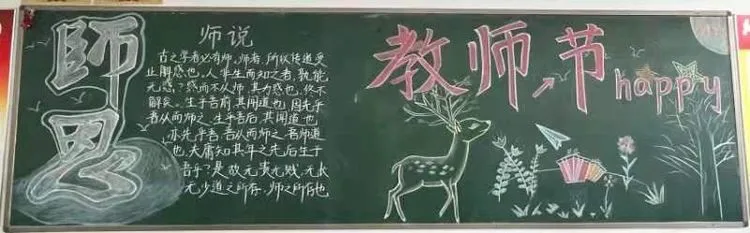 師恩
师说
古之学者必有师。师者,所以传道受
业解惑也。人非生而知之者,孰能
无惑?惑而不从师,其为惑也,终不
解矣。生乎吾前,其闻道也,固先乎
吾从而师之,生乎吾后,其闻道也,
亦先乎吾,吾从而师之,吾师道
也,夫庸知其年之先后生于
吾乎?是故无贵无贱,无长
无少道之所存,师之所存也
教师节
happy